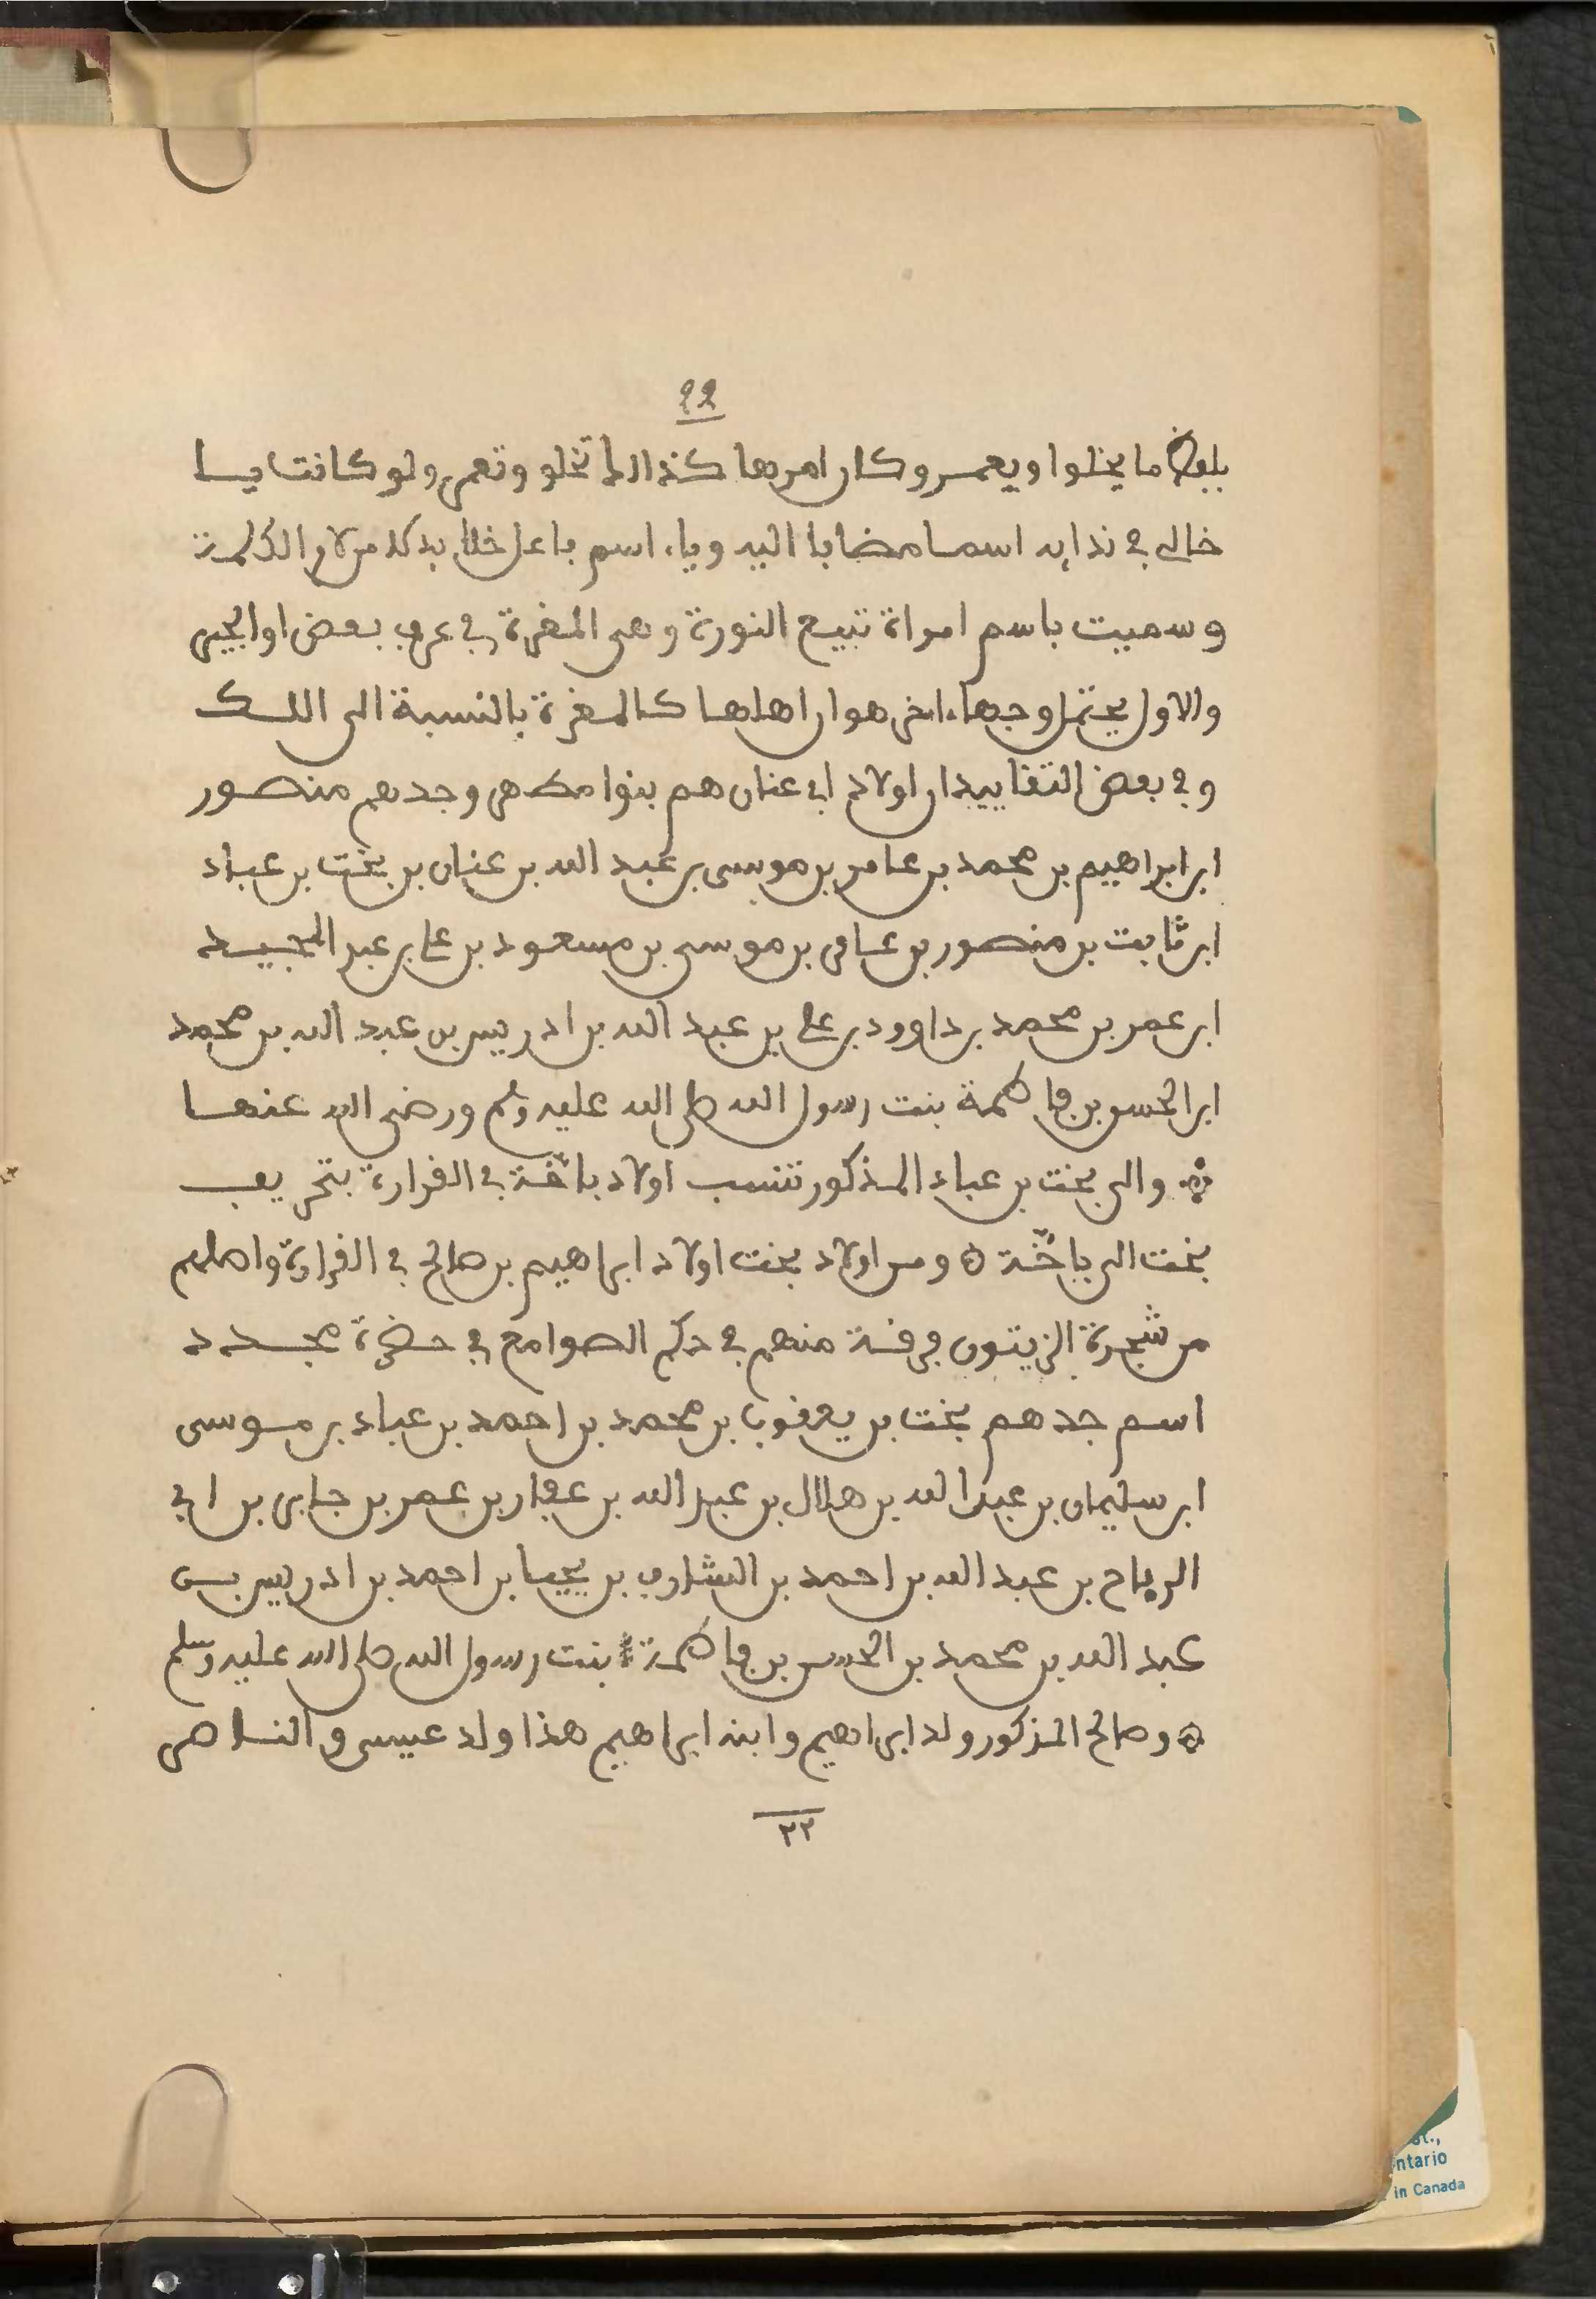 22
بلفظ ما يخلوا ويعمر وكان امرها كذالك تخلو وتعمر ولو كانت يا
خالي في نداىه اسما مضافا اليه وياء اسم فاعل خلا بدلا من لام الكلمة
وسميت باسم امراة تبيع النورة وهي المغرة في عرف بعض اوالجير
والاول يحتمل وجها ءاخر هو ان اهلها كالمغرة بالنسبة الى اللك
وفي بعض التقاييد ان اولاد ابي عنان هم بنوا مطهر وجدهم منصور
ابن ابراهيم بن محمد بن عامر بن موسى بن عبد الله بن عنان بن بخت بن عباد
ابن ثابت بن منصور بن عامر بن موسى بن مسعود بن علي بن عبد المجيد
ابن عمر بن محمد بن داوود بن علي بن عبد الله بن ادريس بن عبد الله بن محمد
ابن الحسن بن فاطمة بنت رسول الله صلى الله عليه وسلم ورضي الله عنها
والى بخت بن عباد المذكور تنسب اولاد باخّة في القرارة بتحريف
بخت الى باخّة ومن اولاد بخت اولاد ابراهيم بن صالح في القرارة واصلهم
من شجرة الزيتون فرقة منهم في حكم الصوامع في حضرة مجدد
اسم جدهم بخت بن يعقوب بن محمد بن احمد بن عباد بن موسى
ابن سليمان بن عبد الله بن هلال بن عبد الله بن عفار بن عمر بن جابر بن ابي
الرياح بن عبد الله بن احمد بن الشارف بن يحيا بن احمد بن ادريس بن
عبد الله بن محمد بن الحسن بن فاطمة بنت رسول الله صلى الله عليه وسلم
وصالح المذكور ولد ابراهيم وابنه ابراهيم هذا ولد عيسى والناصر
٢٢
ntario
in Canada